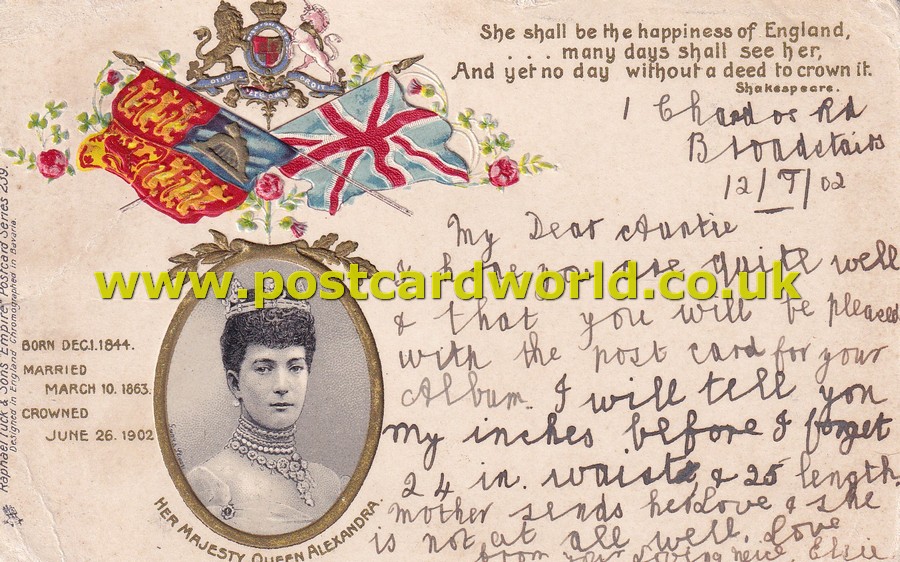 DIEU ET MON DROIT
She shall be the happiness of England,
. . . many days shall see her,
And yet no day without a deed to crown it.
Shakespeare.
1 Chandos Rd
Broadstairs
12/V/02
My Dear Auntie
I hope you are quite well
& that you will be pleased
with the post card for your
Album. I will tell you
my inches before I forget
24 in. waist, & 25 length.
Mother sends her Love & she
is not at all well. Love
from your loving neice Elsie
www.postcardworld.co.uk
BORN DEC.1.1844.
MARRIED
MARCH 10. 1863.
CROWNED
JUNE 26. 1902
HER MAJESTY QUEEN ALEXANDRA.
Raphael Tuck & Sons' "Empire" Postcard Series 239.
Designed in England. Chromographed in Bavaria.